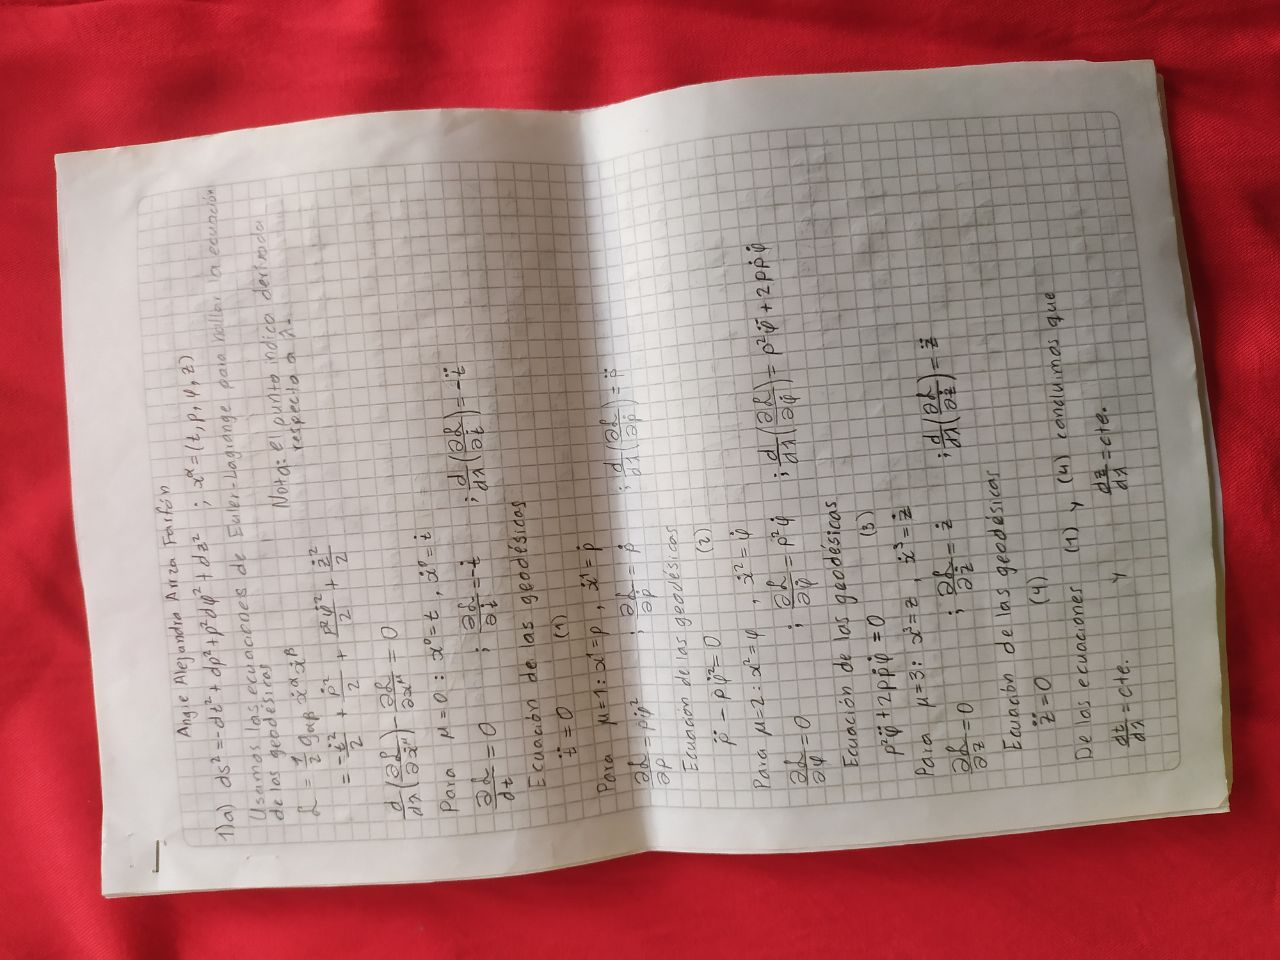 Angie Alejandra Ariza Farfán
1)a) ds² = -dt² + dρ² + ρ²dφ² + dz² ; xᵅ = (t, ρ, φ, z)
Usamos las ecuaciones de Euler-Lagrange para hallar la ecuación
de las geodésicas
Nota: el punto indica derivada
respecto a λ.
ℒ = 1/2 g_αβ ẋᵅ ẋᵝ
= -ṫ²/2 + ρ̇²/2 + ρ²φ̇²/2 + ż²/2
d/dλ (∂ℒ/∂ẋᵘ) - ∂ℒ/∂xᵘ = 0
Para μ=0 : x⁰ = t , ẋ⁰ = ṫ
∂ℒ/dt = 0 ; ∂ℒ/∂ṫ = -ṫ ; d/dλ (∂ℒ/∂ṫ) = -ẗ
Ecuación de las geodésicas
ẗ = 0 (1)
Para μ=1 : x¹ = ρ , ẋ¹ = ρ̇
∂ℒ/∂ρ = ρφ̇² ; ∂ℒ/∂ρ̇ = ρ̇ ; d/dλ (∂ℒ/∂ρ̇) = ρ̈
Ecuación de las geodésicas
ρ̈ - ρφ̇² = 0 (2)
Para μ=2 : x² = φ , ẋ² = φ̇
∂ℒ/∂φ = 0 ; ∂ℒ/∂φ̇ = ρ²φ̇ ; d/dλ (∂ℒ/∂φ̇) = ρ²φ̈ + 2ρρ̇φ̇
Ecuación de las geodésicas
ρ²φ̈ + 2ρρ̇φ̇ = 0 (3)
Para μ=3 : x³ = z , ẋ³ = ż
∂ℒ/∂z = 0 ; ∂ℒ/∂ż = ż ; d/dλ (∂ℒ/∂ż) = z̈
Ecuación de las geodésicas
z̈ = 0 (4)
De las ecuaciones (1) y (4) concluimos que
dt/dλ = cte. y dz/dλ = cte.